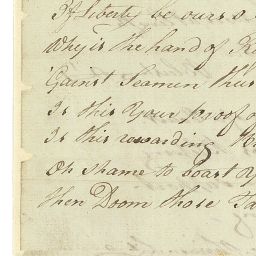 If Liberty be ours
Why is the hand of
'Gainst Seamen thus
Is this Your proof o
Is this rewarding
Oh shame to boast Y
then Doom those Ta